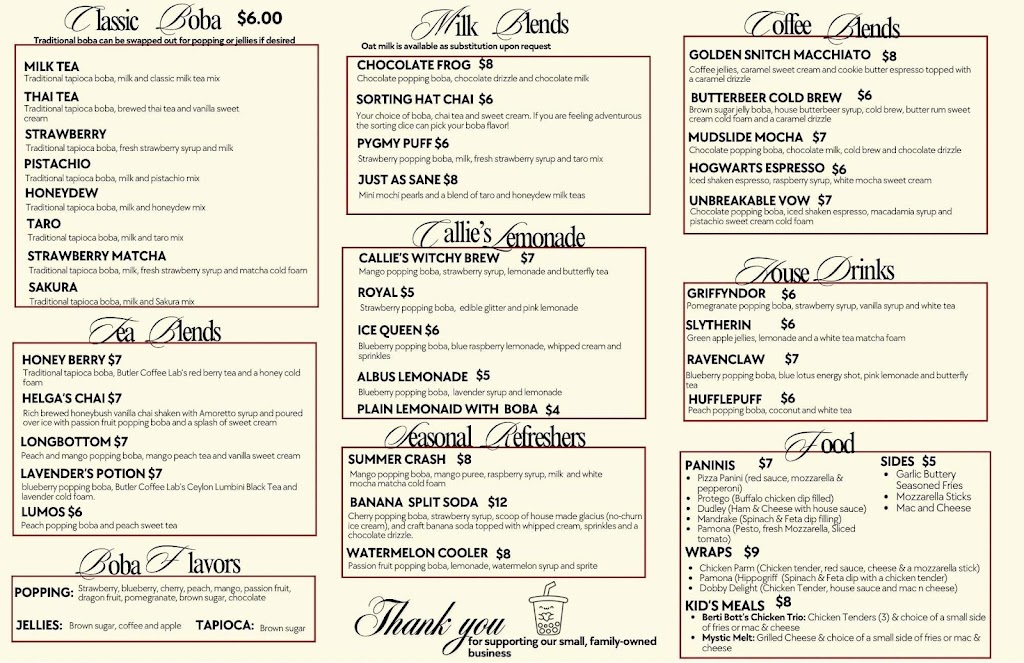 Classic Boba $6.00
Traditional boba can be swapped out for popping or jellies if desired
MILK TEA
Traditional tapioca boba, milk and classic milk tea mix
THAI TEA
Traditional tapioca boba, brewed thai tea and vanilla sweet
cream
STRAWBERRY
Traditional tapioca boba, fresh strawberry syrup and milk
PISTACHIO
Traditional tapioca boba, milk and pistachio mix
HONEYDEW
Traditional tapioca boba, milk and honeydew mix
TARO
Traditional tapioca boba, milk and taro mix
STRAWBERRY MATCHA
Traditional tapioca boba, milk, fresh strawberry syrup and matcha cold foam
SAKURA
Traditional tapioca boba, milk and Sakura mix
Tea Blends
HONEY BERRY $7
Traditional tapioca boba, Butler Coffee Lab's red berry tea and a honey cold
foam
HELGA'S CHAI $7
Rich brewed honeybush vanilla chai shaken with Amoretto syrup and poured
over ice with passion fruit popping boba and a splash of sweet cream
LONGBOTTOM $7
Peach and mango popping boba, mango peach tea and vanilla sweet cream
LAVENDER'S POTION $7
blueberry popping boba, Butler Coffee Lab's Ceylon Lumbini Black Tea and
lavender cold foam.
LUMOS $6
Peach popping boba and peach sweet tea
Boba Flavors
POPPING: Strawberry, blueberry, cherry, peach, mango, passion fruit,
dragon fruit, pomegranate, brown sugar, chocolate
JELLIES: Brown sugar, coffee and apple TAPIOCA: Brown sugar
Milk Blends
Oat milk is available as substitution upon request
CHOCOLATE FROG $8
Chocolate popping boba, chocolate drizzle and chocolate milk
SORTING HAT CHAI $6
Your choice of boba, chai tea and sweet cream. If you are feeling adventurous
the sorting dice can pick your boba flavor!
PYGMY PUFF $6
Strawberry popping boba, milk, fresh strawberry syrup and taro mix
JUST AS SANE $8
Mini mochi pearls and a blend of taro and honeydew milk teas
Callie's Lemonade
CALLIE'S WITCHY BREW $7
Mango popping boba, strawberry syrup, lemonade and butterfly tea
ROYAL $5
Strawberry popping boba, edible glitter and pink lemonade
ICE QUEEN $6
Blueberry popping boba, blue raspberry lemonade, whipped cream and
sprinkles
ALBUS LEMONADE $5
Blueberry popping boba, lavender syrup and lemonade
PLAIN LEMONAID WITH BOBA $4
Seasonal Refreshers
SUMMER CRASH $8
Mango popping boba, mango puree, raspberry syrup, milk and white
mocha matcha cold foam
BANANA SPLIT SODA $12
Cherry popping boba, strawberry syrup, scoop of house made glacius (no-churn
ice cream), and craft banana soda topped with whipped cream, sprinkles and a
chocolate drizzle.
WATERMELON COOLER $8
Passion fruit popping boba, lemonade, watermelon syrup and sprite
Thank you
for supporting our small, family-owned
business
Coffee Blends
GOLDEN SNITCH MACCHIATO $8
Coffee jellies, caramel sweet cream and cookie butter espresso topped with
a caramel drizzle
BUTTERBEER COLD BREW $6
Brown sugar jelly boba, house butterbeer syrup, cold brew, butter rum sweet
cream cold foam and a caramel drizzle
MUDSLIDE MOCHA $7
Chocolate popping boba, chocolate milk, cold brew and chocolate drizzle
HOGWARTS ESPRESSO $6
Iced shaken espresso, raspberry syrup, white mocha sweet cream
UNBREAKABLE VOW $7
Chocolate popping boba, iced shaken espresso, macadamia syrup and
pistachio sweet cream cold foam
House Drinks
GRIFFYNDOR $6
Pomegranate popping boba, strawberry syrup, vanilla syrup and white tea
SLYTHERIN $6
Green apple jellies, lemonade and a white tea matcha foam
RAVENCLAW $7
Blueberry popping boba, blue lotus energy shot, pink lemonade and butterfly
tea
HUFFLEPUFF $6
Peach popping boba, coconut and white tea
Food
PANINIS $7
• Pizza Panini (red sauce, mozzarella &
pepperoni)
• Protego (Buffalo chicken dip filled)
• Dudley (Ham & Cheese with house sauce)
• Mandrake (Spinach & Feta dip filling)
• Pamona (Pesto, fresh Mozzarella, Sliced
tomato)
SIDES $5
• Garlic Buttery
Seasoned Fries
• Mozzarella Sticks
• Mac and Cheese
WRAPS $9
• Chicken Parm (Chicken tender, red sauce, cheese & a mozzarella stick)
• Pamona (Hippogriff (Spinach & Feta dip with a chicken tender)
• Dobby Delight (Chicken Tender, house sauce and mac n cheese)
KID'S MEALS $8
• Berti Bott's Chicken Trio: Chicken Tenders (3) & choice of a small side
of fries or mac & cheese
• Mystic Melt: Grilled Cheese & choice of a small side of fries or mac &
cheese